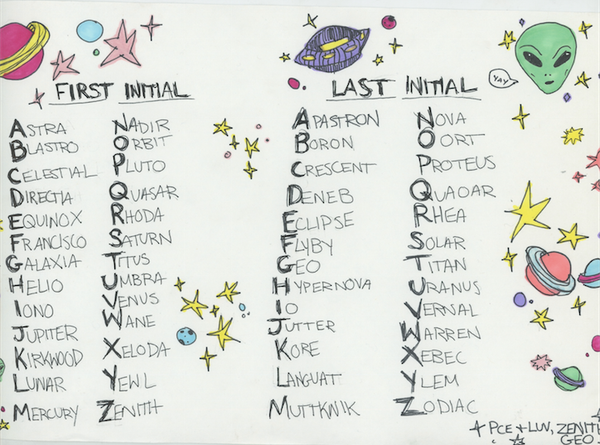 FIRST INITIAL
ASTRA
BLASTRO
CELESTIAL
DIRECTIA
EQUINOX
FRANCISCO
GALAXIA
HELIO
IONO
JUPITER
KIRKWOOD
LUNAR
MERCURY
NADIR
ORBIT
PLUTO
QUASAR
RHODA
SATURN
TITUS
UMBRA
VENUS
WANE
XELODA
YEWL
ZENITH
LAST INITIAL
YAY
APASTRON
BORON
CRESCENT
DENEB
ECLIPSE
FLYBY
GEO
HYPERNOVA
IO
JUTTER
KORE
LANGUATI
MUTTKNIK
NOVA
OORT
PROTEUS
QUAOAR
RHEA
SOLAR
TITAN
URANUS
VERNAL
WARREN
XEBEC
YLEM
ZODIAC
PCE + LUV, ZENITH
GEO